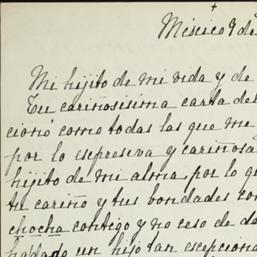 México 9 de
Mi hijito de mi vida y de
Tu cariñosisima carta del
cionó como todas las que me
por lo espresiva y cariñosa
hijito de mi alma, por lo q
tu cariño y tus bondades con
chocha contigo y no ceso de da
hablado un hijo tan escepciona